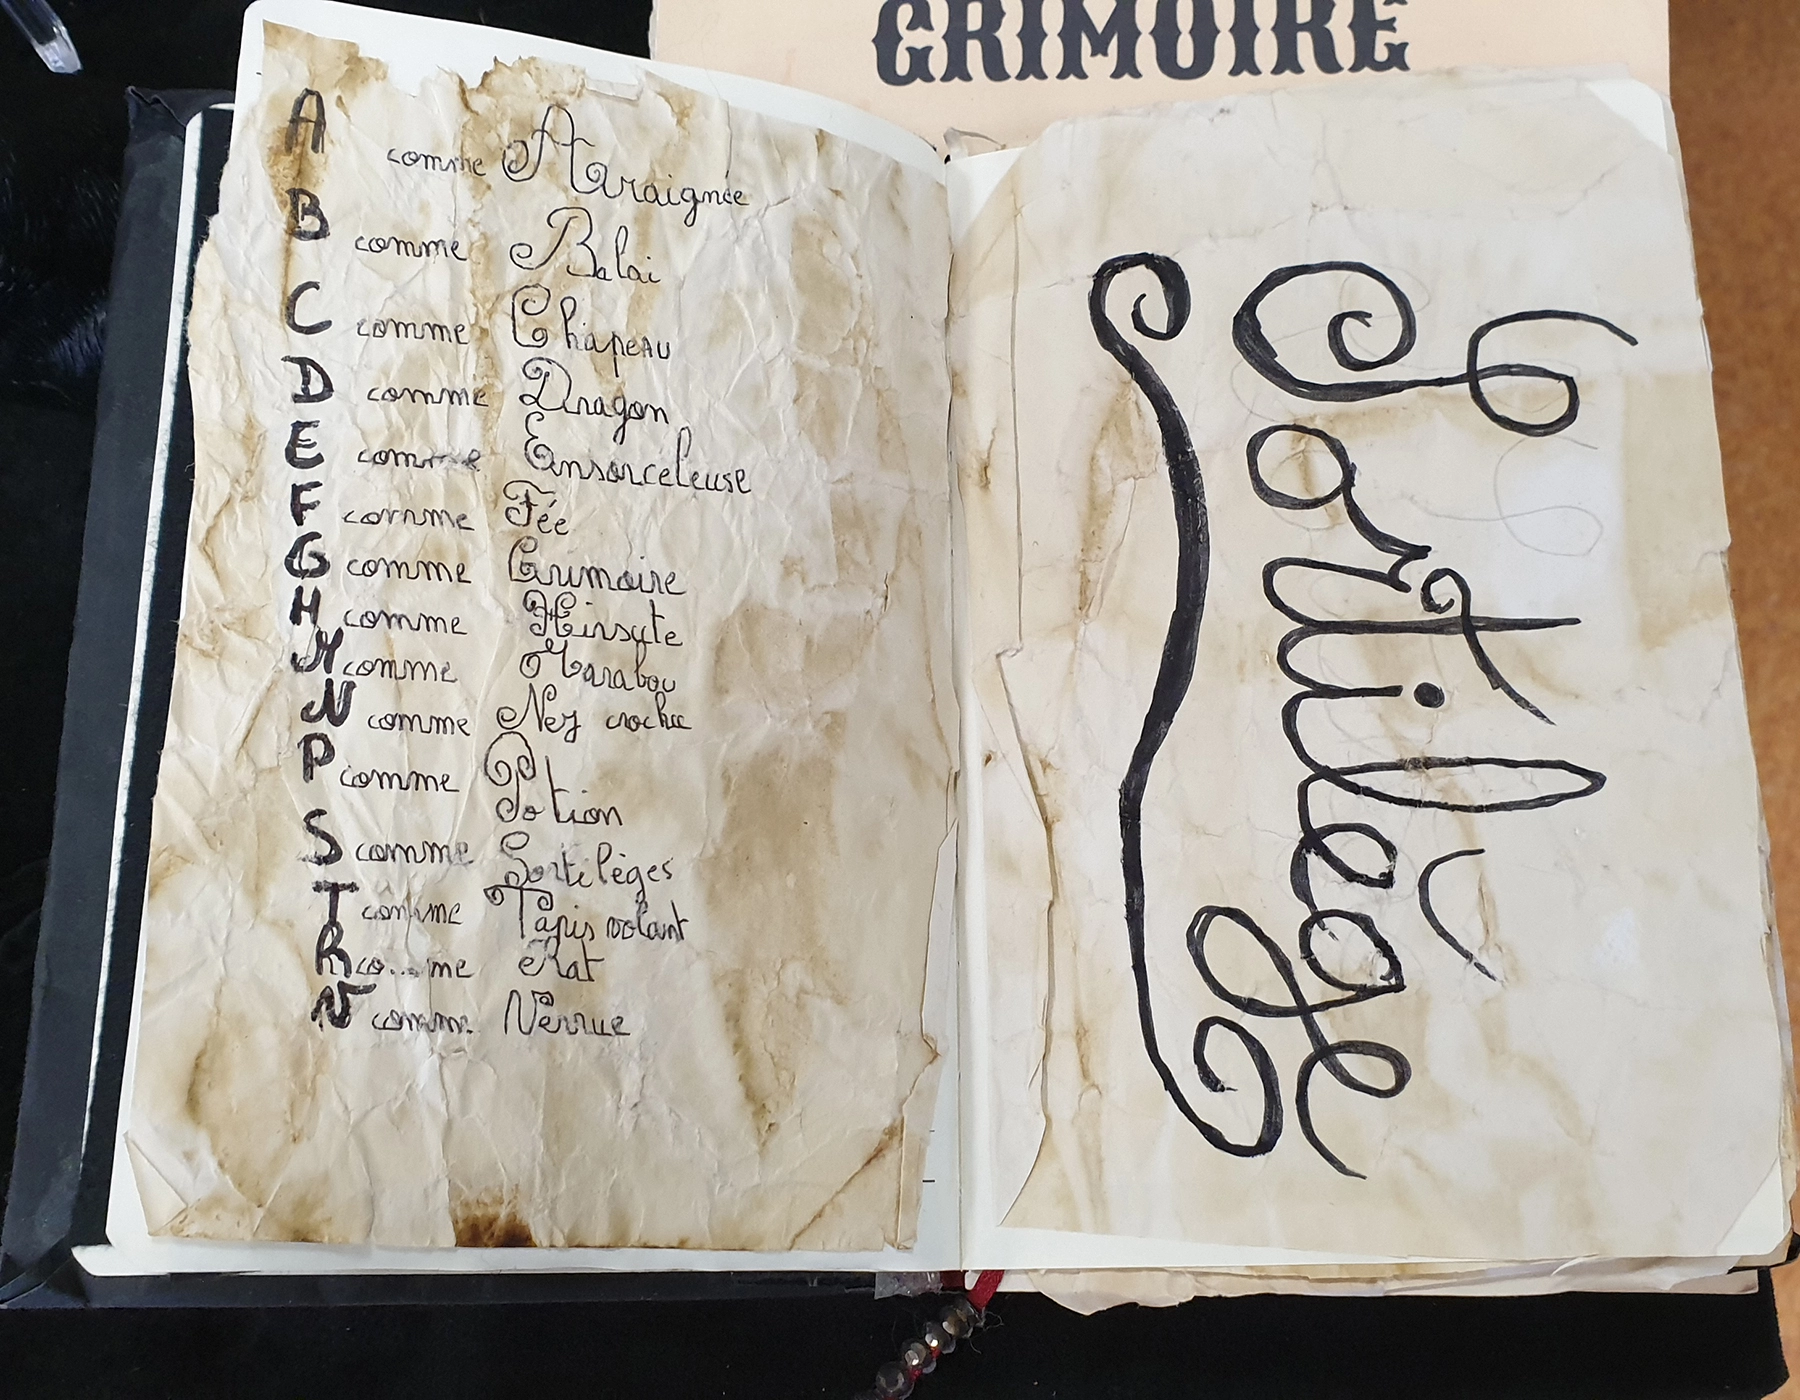 GRIMOIRE
A comme Araignée
B comme Balai
C comme Chapeau
D comme Dragon
E comme Ensorceleuse
F comme Fée
G comme Grimoire
H comme Hirsute
M comme Marabou
N comme Nez crochu
P comme Potion
S comme Sortilèges
T comme Tapis volant
R comme Rat
V comme Verrue
Sortilège